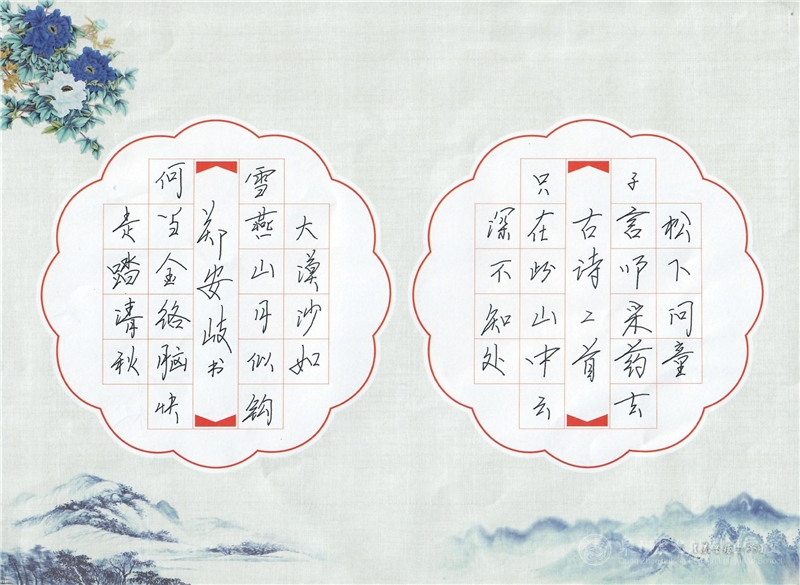 松下问童
子言师采药去
古诗二首
只在此山中云
深不知处
大漠沙如
雪燕山月似钩
郑安岐书
何当金络脑快
走踏清秋